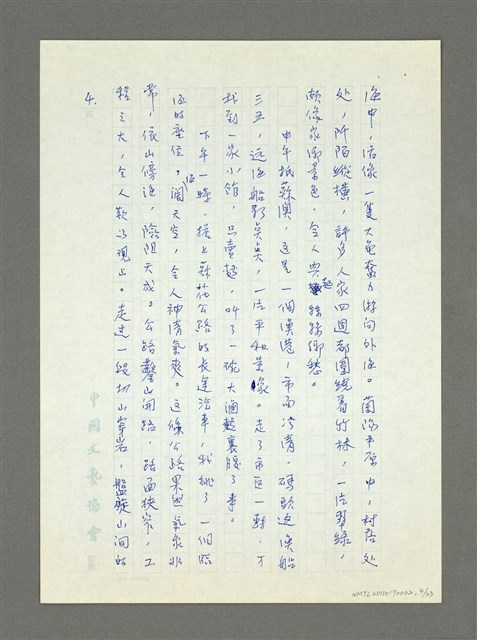 海中，活像一隻大龜奮力游向外海。蘭陽平原中，村落处
处，阡陌縱橫，許多人家四週都圍繞著竹林，一片翠綠，
頗像家鄉景色，令人興起絲絲鄉愁。
中午抵蘇澳，这是一個漁港，市面冷清，碼頭边漁船
三五，远海船影点点，一片平和景象。走了市区一轉，才
找到一家小館，只賣麵，叫了一碗大滷麵裹腹了事。
下午一時，搭上蘇花公路的長途汽車，我挑了一個临
海的座位。海闊天空，令人神清氣爽。这條公路果然氣象非
常，依山傍海，險阻天成。公路鑿山開路，路面狹窄，工
程之大，令人歎为观止。走过一段切山穿岩，盤旋山间的
4.
中國文藝協會
NMTL20110190002, 4/23